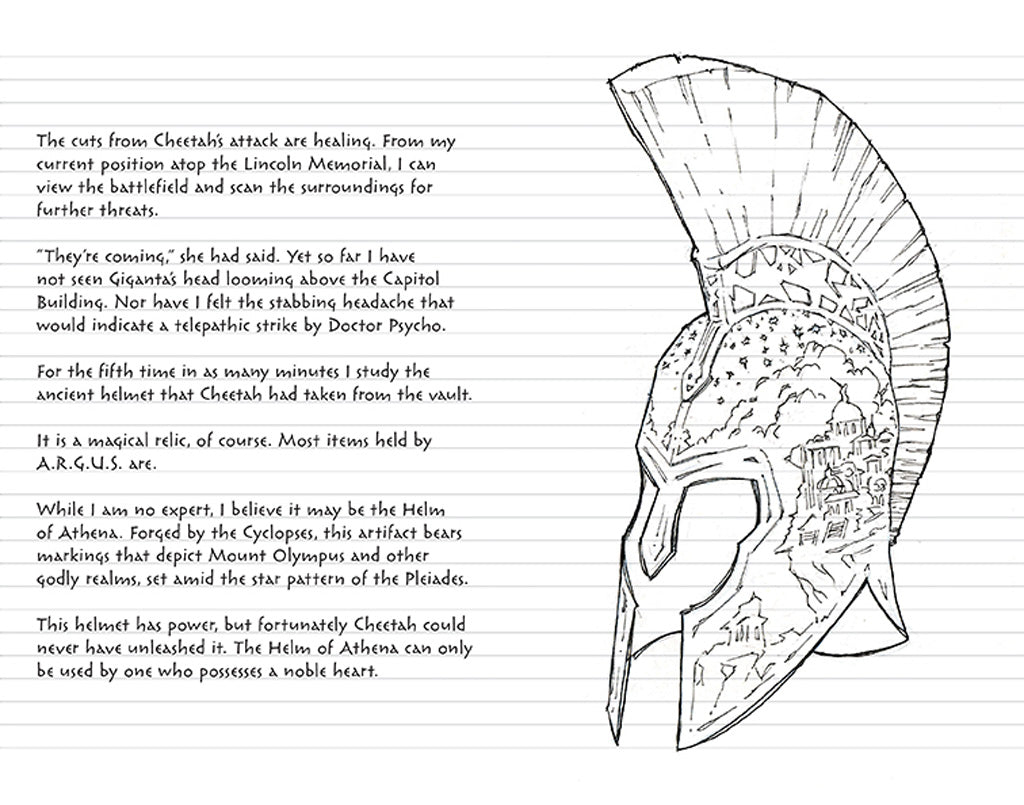 The cuts from Cheetah's attack are healing. From my
current position atop the Lincoln Memorial, I can
view the battlefield and scan the surroundings for
further threats.
"They're coming," she had said. Yet so far I have
not seen Giganta's head looming above the Capitol
Building. Nor have I felt the stabbing headache that
would indicate a telepathic strike by Doctor Psycho.
For the fifth time in as many minutes I study the
ancient helmet that Cheetah had taken from the vault.
It is a magical relic, of course. Most items held by
A.R.G.U.S. are.
While I am no expert, I believe it may be the Helm
of Athena. Forged by the Cyclopses, this artifact bears
markings that depict Mount Olympus and other
godly realms, set amid the star pattern of the Pleiades.
This helmet has power, but fortunately Cheetah could
never have unleashed it. The Helm of Athena can only
be used by one who possesses a noble heart.